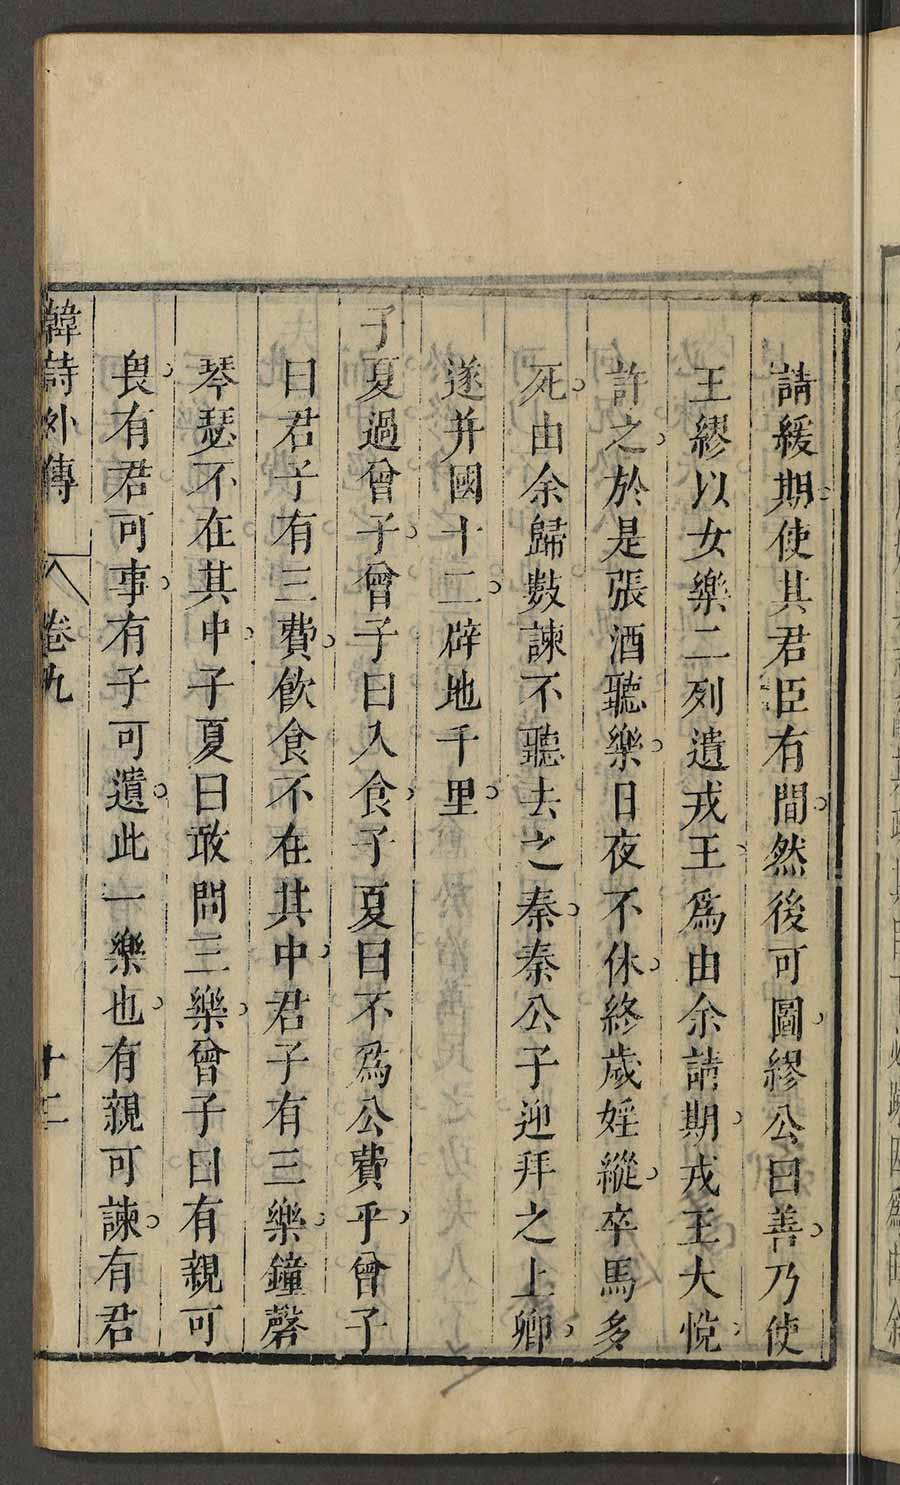 請緩期使其君臣有間然後可圖繆公曰善乃使
王繆以女樂二列遺戎王爲由余請期戎王大悅
許之於是張酒聽樂日夜不休終歲婬縱卒馬多
死由余歸數諫不聽去之秦秦公子迎拜之上卿
遂并國十二辟地千里
子夏過曾子曾子曰入食子夏曰不爲公費乎曾子
曰君子有三費飲食不在其中君子有三樂鐘磬
琴瑟不在其中子夏曰敢問三樂曾子曰有親可
畏有君可事有子可遺此一樂也有親可諫有君
韓詩外傳 卷九 十二